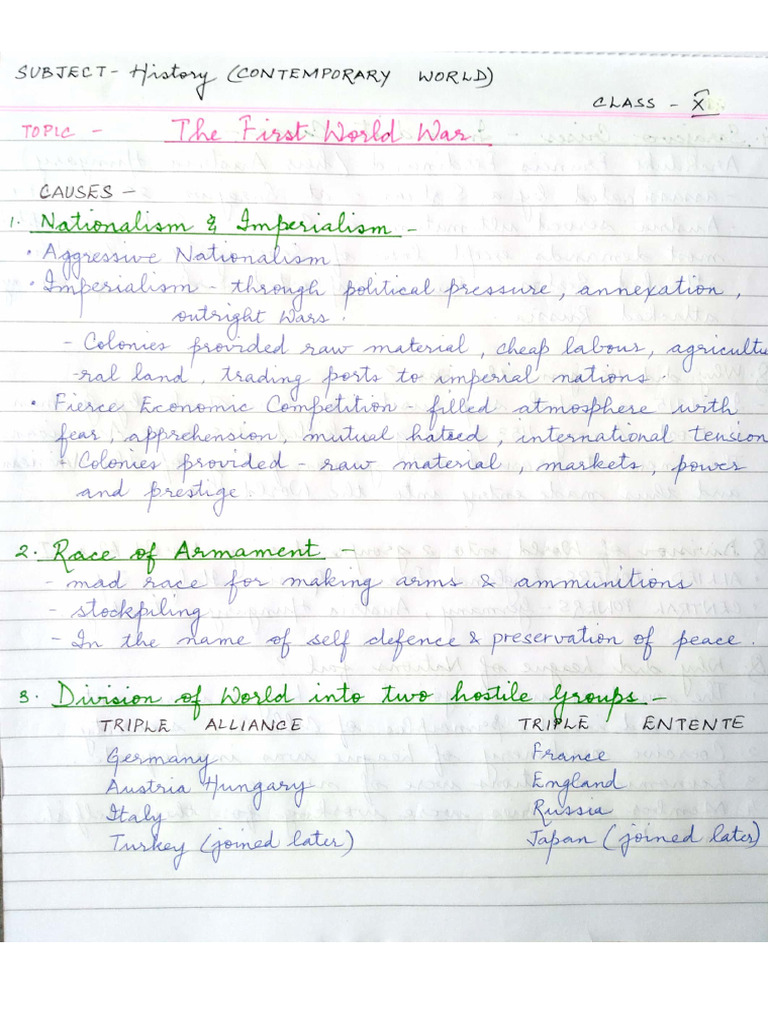 SUBJECT - History (CONTEMPORARY WORLD)
CLASS - X
TOPIC - The First World War
CAUSES -
1. Nationalism & Imperialism -
• Aggressive Nationalism
• Imperialism - through political pressure, annexation,
outright Wars.
- Colonies provided raw material, cheap labour, agricultu
-ral land, trading ports to imperial nations.
• Fierce Economic Competition - filled atmosphere with
fear, apprehension, mutual hatred, international tension
- Colonies provided - raw material, markets, power
and prestige.
2. Race of Armament -
- mad race for making arms & ammunitions
- stockpiling
- In the name of self defence & preservation of peace.
3. Division of World into two hostile Groups -
TRIPLE ALLIANCE TRIPLE ENTENTE
Germany France
Austria Hungary England
Italy Russia
Turkey (joined later) Japan (joined later)